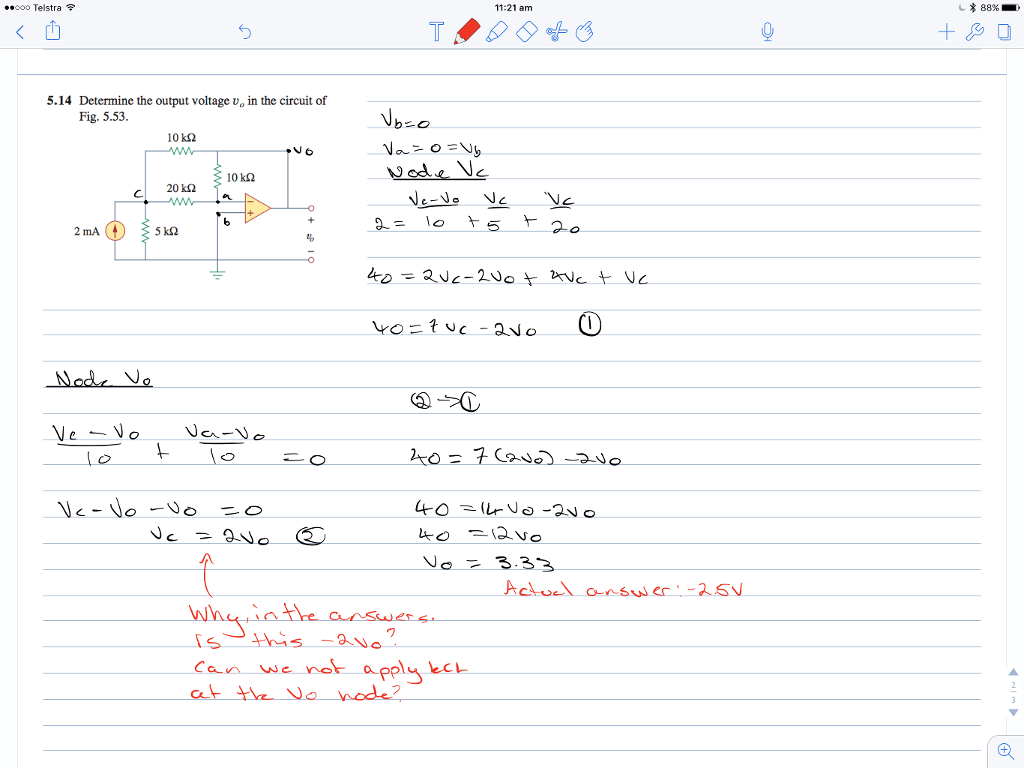 ●●○○○ Telstra
11:21 am
88%
T
5.14 Determine the output voltage vo in the circuit of
Fig. 5.53.
10 kΩ
Vo
10 kΩ
C
20 kΩ
a
−
b
+
+
2 mA
5 kΩ
vo
−
Vb=0
Va=0=Vb
Node Vc
2 = Vc-Vo/10 + Vc/5 + Vc/20
40 = 2Vc-2Vo + 4Vc + Vc
40=7Vc-2Vo ①
Node Vo
Vc-Vo/10 + Va-Vo/10 =0
Vc-Vo-Vo =0
Vc = 2Vo ②
②→①
40=7(2Vo)-2Vo
40 =14Vo-2Vo
40 =12Vo
Vo = 3.33
Actual answer:-2.5V
Why, in the answers.
is this -2Vo?
Can we not apply kCL
at the Vo node?
2
3